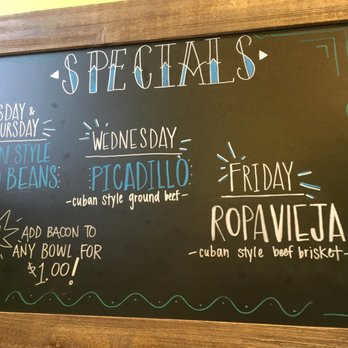 SPECIALS
SDAY &
URSDAY
N STYLE
BEANS
WEDNESDAY
PICADILLO
-cuban style ground beef-
FRIDAY
ROPA VIEJA
-cuban style beef brisket-
ADD BACON TO
ANY BOWL FOR
$1.00!